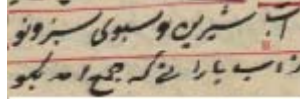 آب شیرین و سبوی سبز و نو
ز آب بارانی که جمع آمد بگو